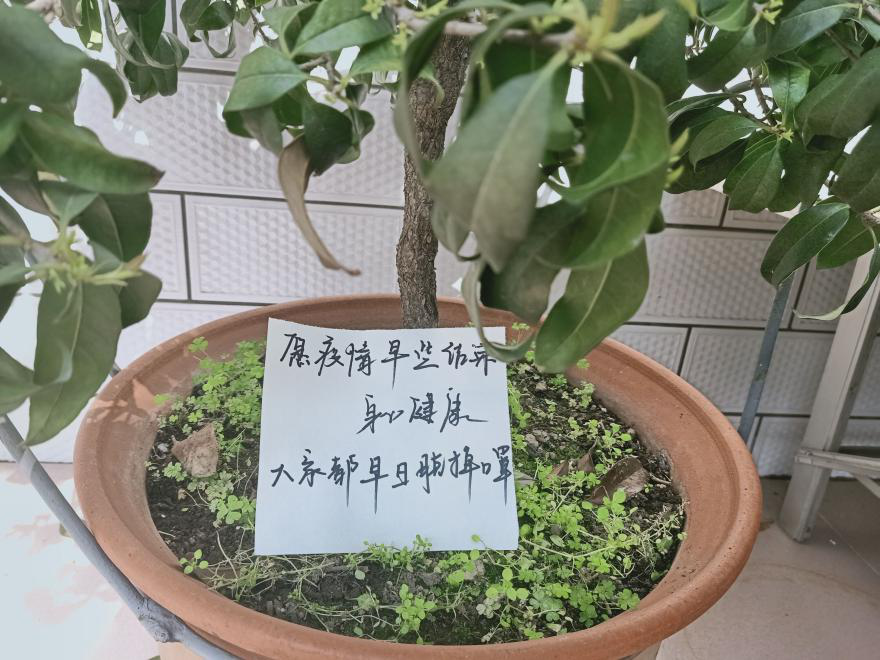 愿疫情早些结束
身心健康
大家都早日脱掉口罩